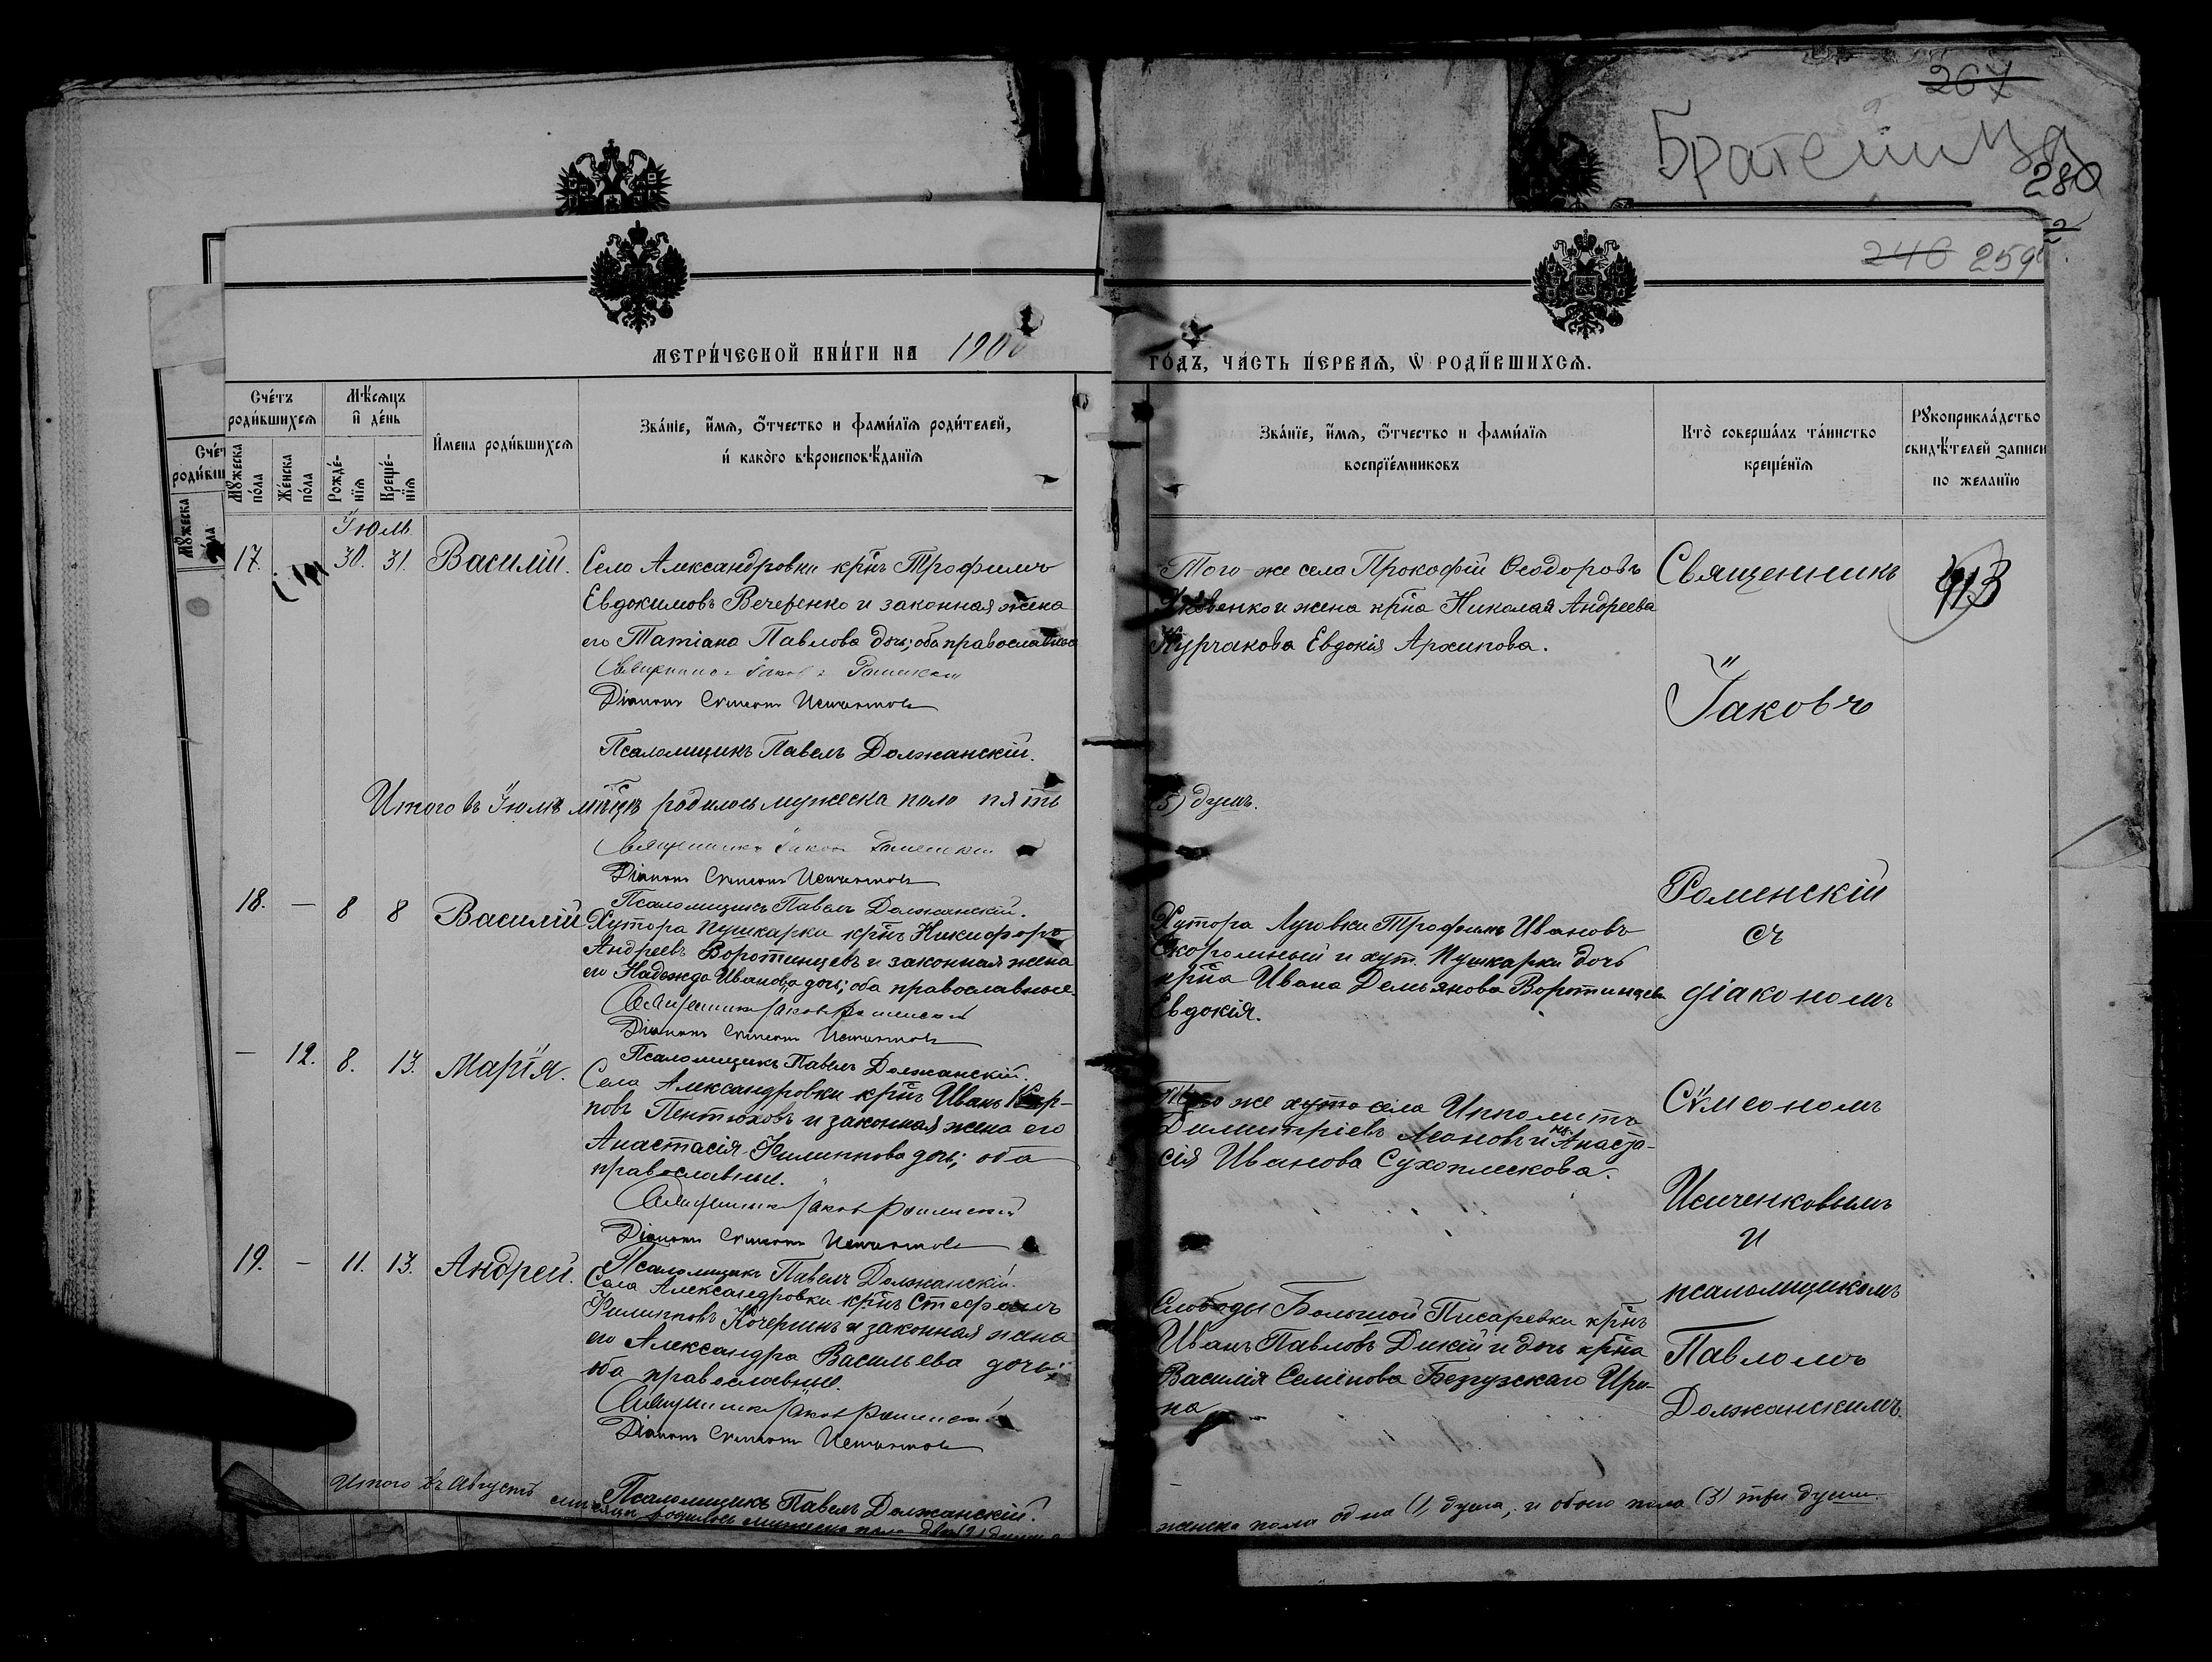 267
Братеница
280
246 259
МЕТРИ́ЧЕСКОЙ КНИ́ГИ НА 1900
ГО́ДЪ, ЧА́СТЬ ПЕ́РВАЯ, Ѡ РОДИ́ВШИХСЯ.
Сче́тъ роди́вшихся
Мѣ́сяцъ и де́нь
Имена роди́вшихся
Зва́нїе, и́мя, ѻ́тчество и фами́лїя роди́телей,
и како́го вѣроисповѣ́данїя
Зва́нїе, и́мя, ѻ́тчество и фами́лїя
воспрїе́мниковъ
Кто̀ соверша́лъ та́инство
креще́нїя
Рꙋкоприкла́дство
свидѣ́телей записи
по желанїю
Мꙋ́жеска по́ла
Же́нска по́ла
Рожде́нїя
Креще́нїя
Іюль
17. 30. 31. Василій.
Села Александровки кр҃нъ Трофимъ
Евдокимовъ Вечеренко и законная жена
его Татіана Павлова дочь; оба православные
Священникъ Іаковъ Роменскій
Діаконъ Сѵмеонъ Исиченковъ
Псаломщикъ Павелъ Должанскій.
Того-же села Прокофій Ѳеодоровъ
и жена кр҃на Николая Андреева
Курчакова Евдокія Архипова.
413
Итого въ Іюлѣ мѣсяцѣ родилось мужеска пола пять
(5) душъ.
Священникъ Іаковъ Роменскій
Діаконъ Сѵмеонъ Исиченковъ
Псаломщикъ Павелъ Должанскій.
18. — 8 8 Василій
Хутора Пушкарки кр҃нъ Никифоръ
Андреевъ Воротынцевъ и законная жена
его Надежда Иванова дочь; оба православные.
Священникъ Іаковъ Роменскій
Діаконъ Сѵмеонъ Исиченковъ
Псаломщикъ Павелъ Должанскій.
Хутора Луговки Трофимъ Ивановъ
Скоромный и хут. Пушкарки дочь
кр҃на Ивана Демьянова Воротынцева
Евдокія.
— 12. 8. 13. Марія.
Села Александровки кр҃нъ Иванъ Кар-
повъ Пентюховъ и законная жена его
Анастасія Филиппова дочь; оба
православные.
Священникъ Іаковъ Роменскій
Діаконъ Сѵмеонъ Исиченковъ
Псаломщикъ Павелъ Должанскій.
Того же хуто села Ипполитъ
Димитріевъ Леоновъ и Анаста-
сія Иванова Сухоплескова.
19. — 11. 13. Андрей.
Села Александровки кр҃нъ Стефанъ
Филипповъ Кочергинъ и законная жена
его Александра Васильева дочь;
оба православные.
Священникъ Іаковъ Роменскій
Діаконъ Сѵмеонъ Исиченковъ
Псаломщикъ Павелъ Должанскій.
Слободы Большой Писаревки кр҃нъ
Иванъ Павловъ Дикій и дочь кр҃на
Василія Семенова Безрузскаго Ири-
на
Священникъ
Іаковъ
Роменскій
съ
діакономъ
Сѵмеономъ
Исиченковымъ
и
псаломщикомъ
Павломъ
Должанскимъ.
Итого въ Августѣ мѣсяцѣ родилось мужеска пола два (2) душъ
женска пола одна (1) душа, и обоего пола (3) три души.